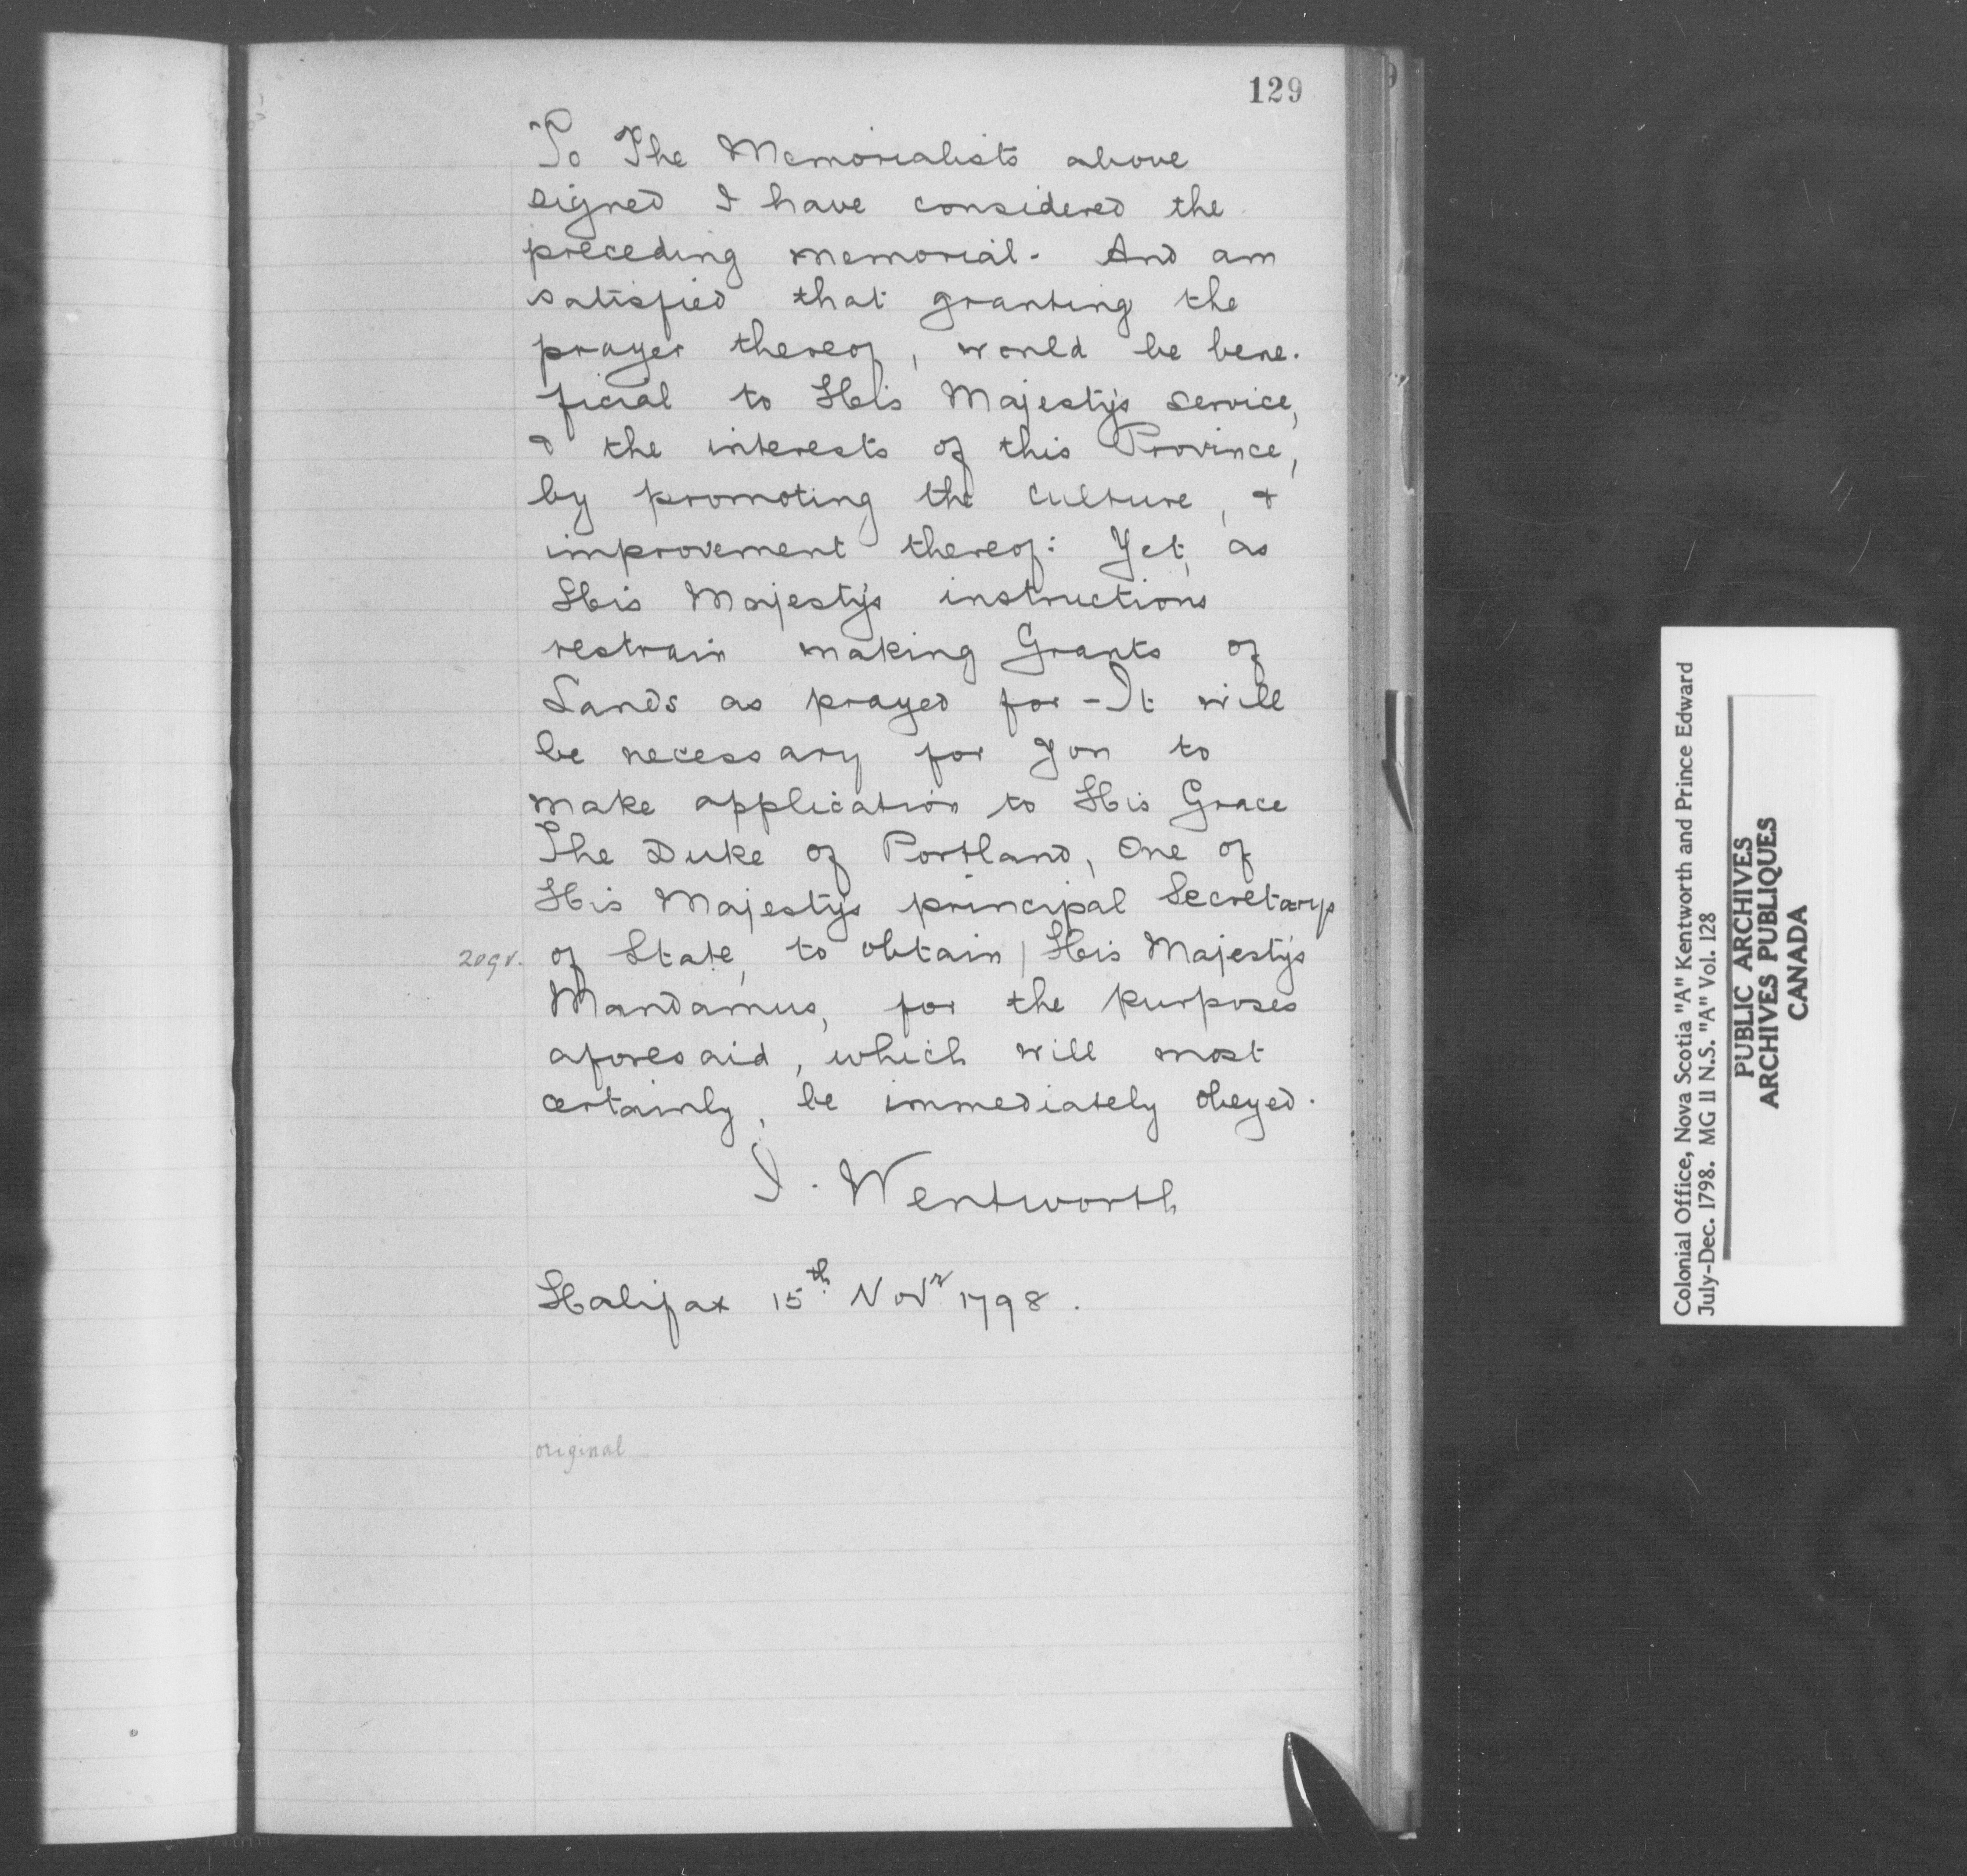 129
To The Memorialists above
signed I have considered the
preceding memorial. And am
satisfied that granting the
prayer thereof, would be bene-
ficial to His Majesty's service,
& the interests of this Province,
by promoting the culture, &
improvement thereof: Yet, as
His Majesty's instructions
restrain making Grants of
Lands as prayed for - It will
be necessary for you to
make application to His Grace
The Duke of Portland, One of
His Majesty's principal Secretarys
209v. of State, to obtain | His Majesty's
Mandamus, for the purposes
aforesaid, which will most
certainly, be immediately obeyed.
J. Wentworth
Halifax 15th Novr 1798.
original
Colonial Office, Nova Scotia "A" Kentworth and Prince Edward
July-Dec. 1798. MG 11 N.S. "A" Vol. 128
PUBLIC ARCHIVES
ARCHIVES PUBLIQUES
CANADA